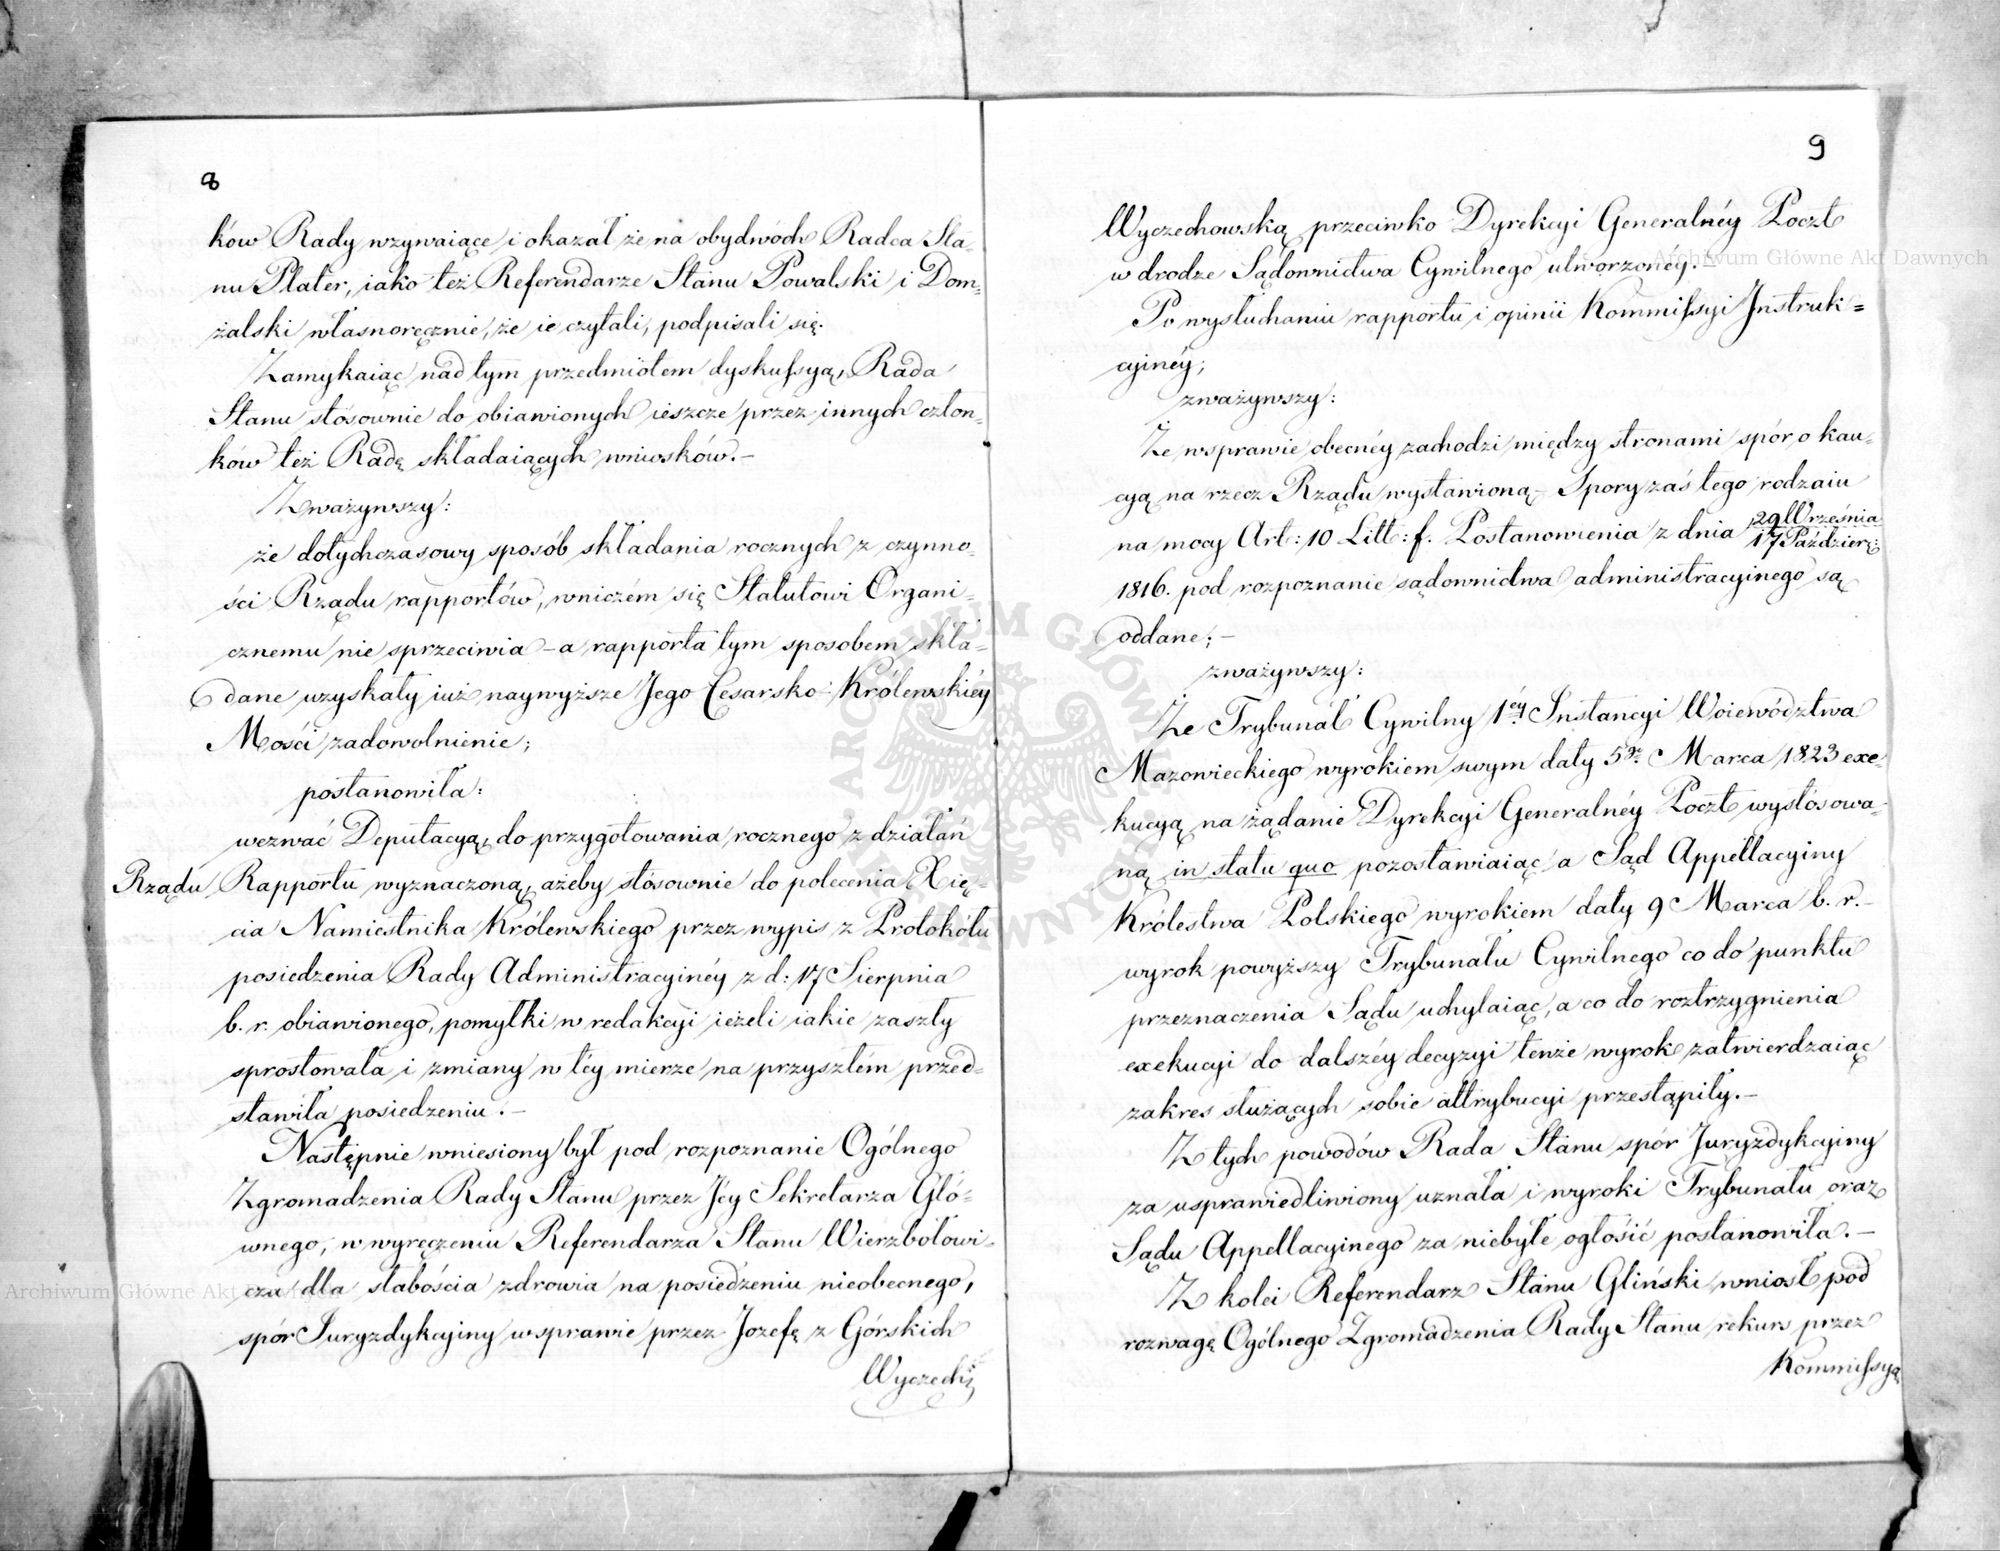 8
ków Rady wzywaiące i okazał że na obydwóch Radca Sta-
nu Plater, iako też Referendarze Stanu Powalski i Dom-
żalski własnoręcznie, że ie czytali, podpisali się.
Zamykaiąc nad tym przedmiotem dyskussyą, Rada
Stanu stósownie do obiawionych ieszcze przez innych człon-
ków też Radę składaiących wniosków.-
Zważywszy:
że dotychczasowy sposób składania rocznych z czynno-
ści Rządu rapportów, wniczém się Statutowi Organi-
cznemu nie sprzeciwia - a rapporta tym sposobem skła-
dane uzyskały iuż naywyższe Jego Cesarsko-Królewskiéy
Mości zadowolnienie;
postanowiła:
wezwać Deputacyą, do przygotowania rocznego z działań
Rządu Rapportu wyznaczoną, ażeby stósownie do polecenia Xię-
cia Namiestnika Królewskiego przez wypis z Protokółu
posiedzenia Rady Administracyinéy z d: 17 Sierpnia
b. r. obiawionego, pomyłki w redakcyi ieżeli iakie zaszły
sprostowała i zmiany w téy mierze na przyszłém przed-
stawiła posiedzeniu.-
Następnie wniesiony był pod rozpoznanie Ogólnego
Zgromadzenia Rady Stanu przez Jéy Sekretarza Głó-
wnego, w wyręczeniu Referendarza Stanu Wierzbołowi-
cza dla słabościa zdrowia na posiedzeniu nieobecnego,
spór Juryzdykcyiny w sprawie przez Jozefę z Górskich
9
Wyczechowską przeciwko Dyrekcyi Generalnéy Poczt
w drodze Sądownictwa Cywilnego utworzonéy.-
Po wysłuchaniu rapportu i opinii Kommissyi Instruk-
cyinéy;
zważywszy:
Że wsprawie obecnéy zachodzi między stronami spór o kau-
cyą na rzecz Rządu wystawioną - Spory zaś tego rodzaiu
na mocy Art: 10 Litt: f. Postanowienia z dnia 29 Września
17 Paździer:
1816. pod rozpoznanie sądownictwa administracyinego są
oddane;-
zważywszy:
Że Trybunał Cywilny 1éy Instancyi Woiewództwa
Mazowieckiego wyrokiem swym daty 5go Marca 1823 exe-
kucyą na żądanie Dyrekcyi Generalnéy Poczt wystósowa-
ną in statu quo pozostawiaiąc a Sąd Appellacyiny
Królestwa Polskiego wyrokiem daty 9 Marca b. r.-
wyrok powyższy Trybunału Cywilnego co do punktu
przeznaczenia Sądu uchylaiąc, a co do roztrzygnienia
exekucyi do dalszéy decyzyi tenże wyrok zatwierdzaiąc
zakres służących sobie attrybucyi przestąpiły.-
Z tych powodów Rada Stanu spór Juryzdykcyiny
za usprawiedliwiony uznała i wyroki Trybunału oraz
Sądu Appellacyinego za niebyłe ogłosić postanowiła.-
Z kolei Referendarz Stanu Gliński wniosł pod
rozwagę Ogólnego Zgromadzenia Rady Stanu rekurs przez
Kommissyą
Archiwum Główne Akt Dawnych